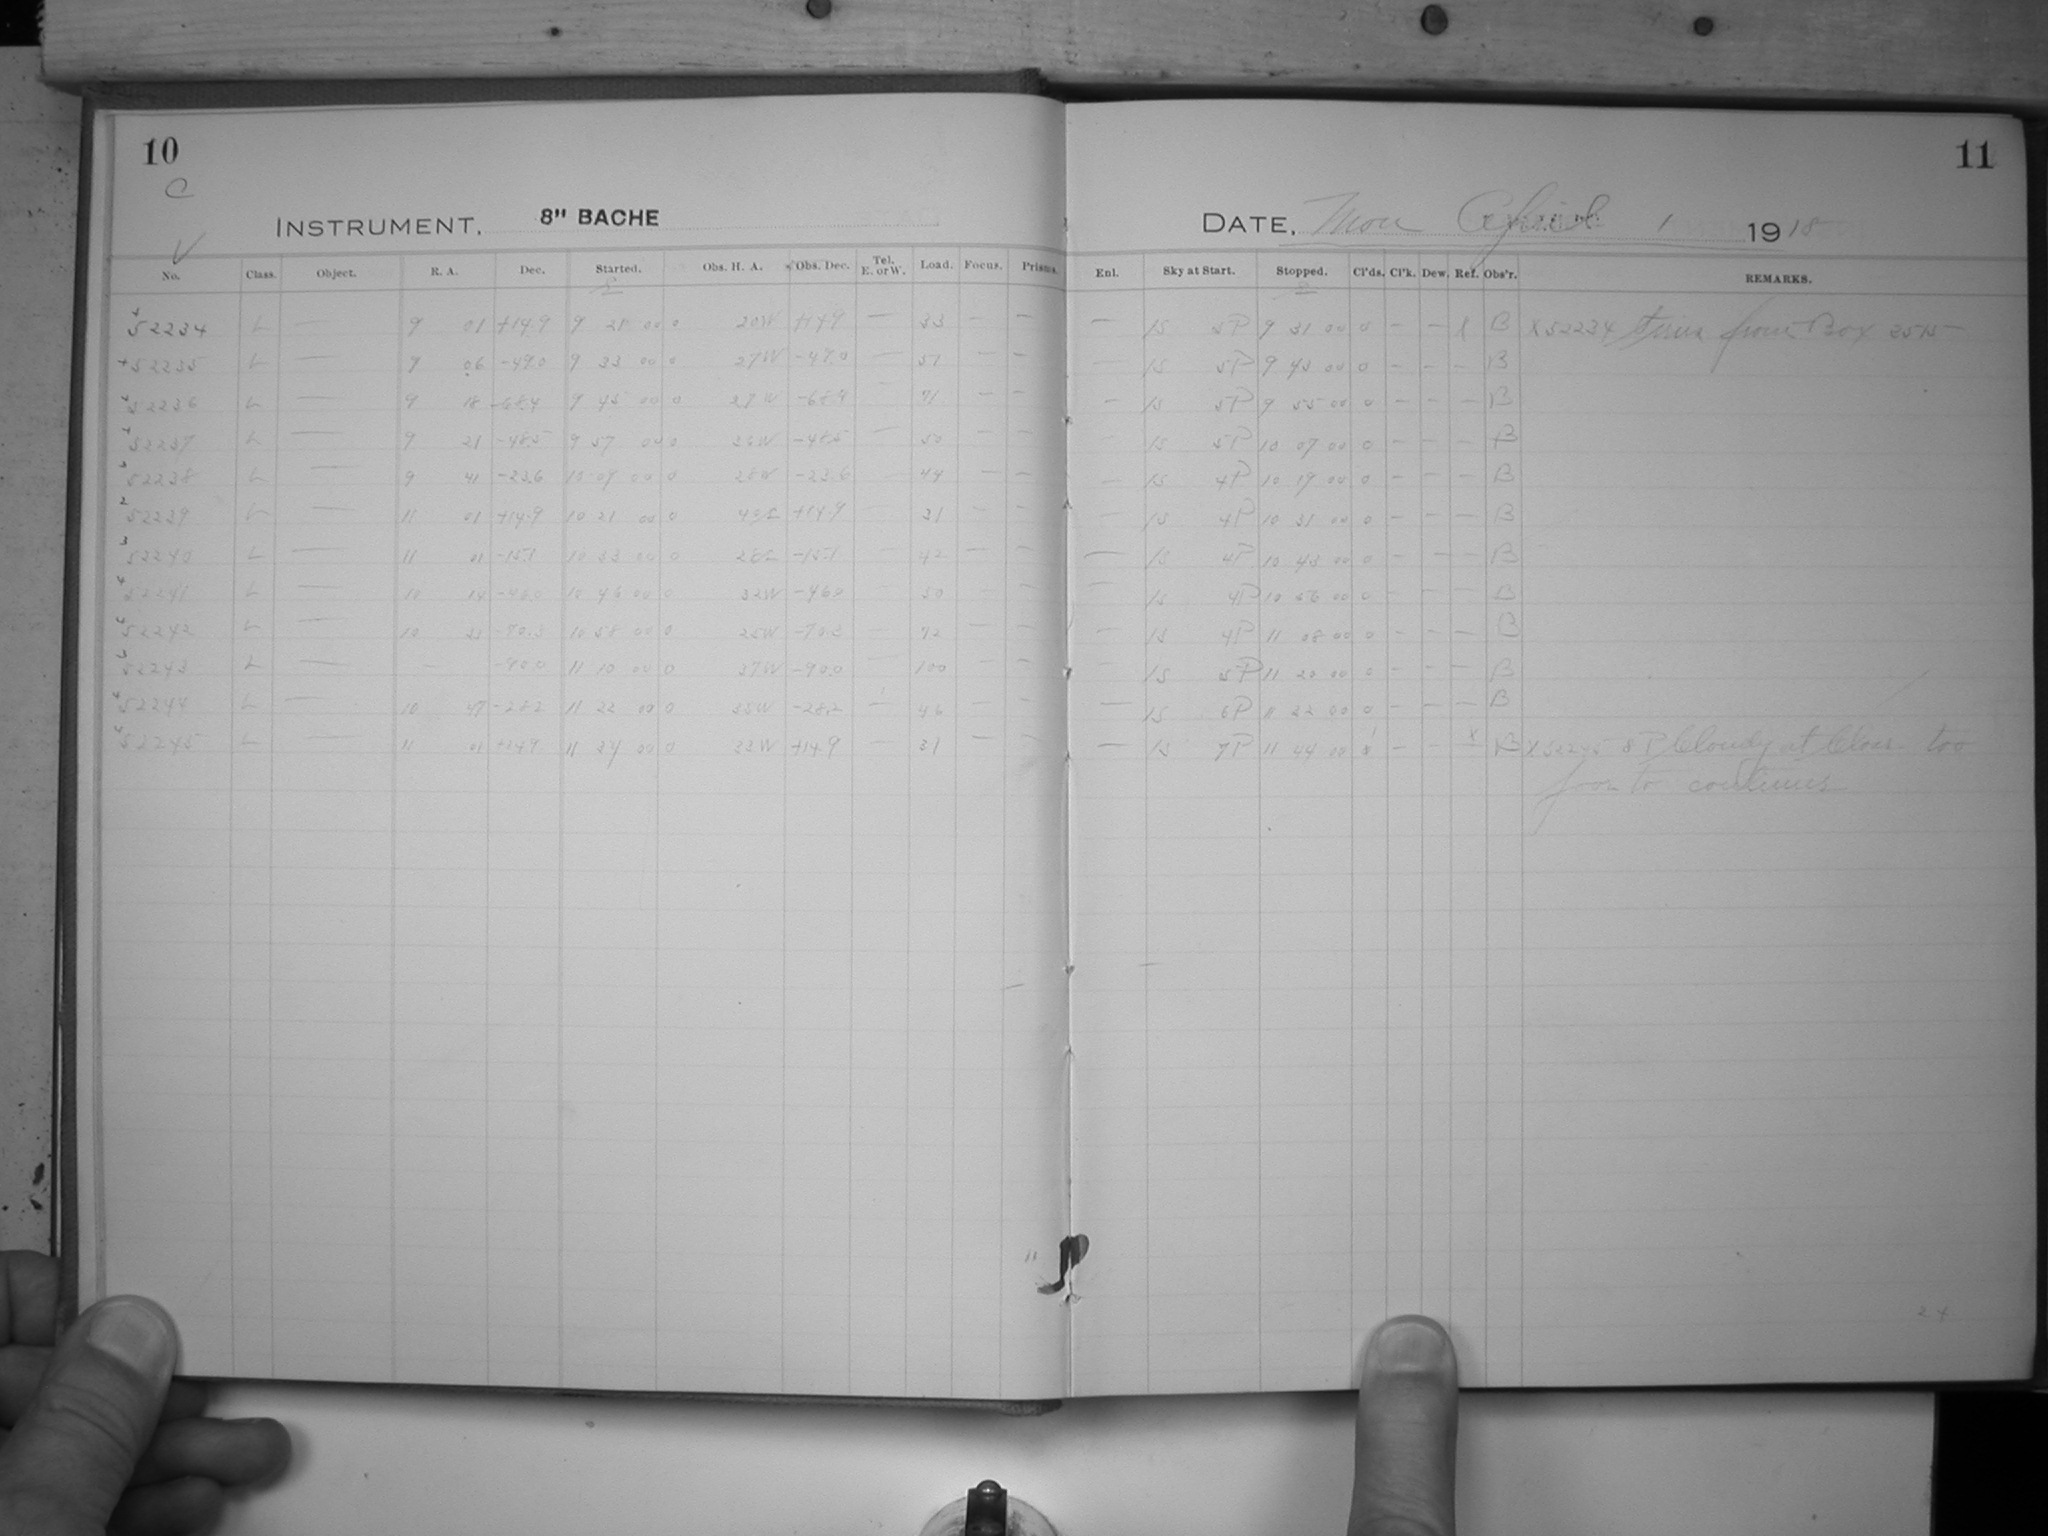 10
11
C
INSTRUMENT. 8" BACHE
DATE. Mon April 1 1918
V
No. Class. Object. R. A. Dec. Started. Obs. H. A. Obs. Dec. Tel. E. or W. Load. Focus. Prisms. Enl. Sky at Start. Stopped. Cl'ds. Cl'k. Dew. Ref. Obs'r. REMARKS.
52234 L — 9 01 +14.9 9 21 00 0 20W +14.9 — 33 — — — 15 5P 9 31 00 0 — — X B X 52234 from Box 2515
52235 L — 9 06 -49.0 9 33 00 0 27W -49.0 — 51 — 15 5P 9 43 00 0 — — — B
52236 L — 9 18 -68.4 9 45 00 0 27W -68.4 71 — — — 15 5P 9 55 00 0 — — — B
52237 L — 9 21 -48.5 9 57 00 0 36W -48.5 — 50 — — — 15 5P 10 07 00 0 — — — B
52238 L — 9 41 -23.6 10 09 00 0 28W -23.6 — 44 — — — 15 4P 10 19 00 0 — — — B
52239 L — 11 01 +14.9 10 21 00 0 40E +14.9 — 31 — — — 15 4P 10 31 00 0 — — — B
52240 L — 11 01 -15.1 10 33 00 0 28E -15.1 — 42 — — — 15 4P 10 43 00 0 — — — B
52241 L — 10 14 -46.0 10 46 00 0 32W -46.0 — 50 — — — 15 4P 10 56 00 0 — — — B
52242 L — 10 33 -70.3 10 58 00 0 25W -70.3 — 72 — — — 15 4P 11 08 00 0 — — — B
52243 L — — -90.0 11 10 00 0 37W -90.0 — 100 — — — 15 5P 11 20 00 0 — — — B
52244 L — 10 47 -28.2 11 22 00 0 35W -28.2 — 46 — — — 15 6P 11 32 00 0 — — — B
52245 L — 11 01 +14.9 11 34 00 0 33W +14.9 — 31 — — — 15 7P 11 44 00 — — X B X 52245 8P Cloudy at Close too
poor to continue
24